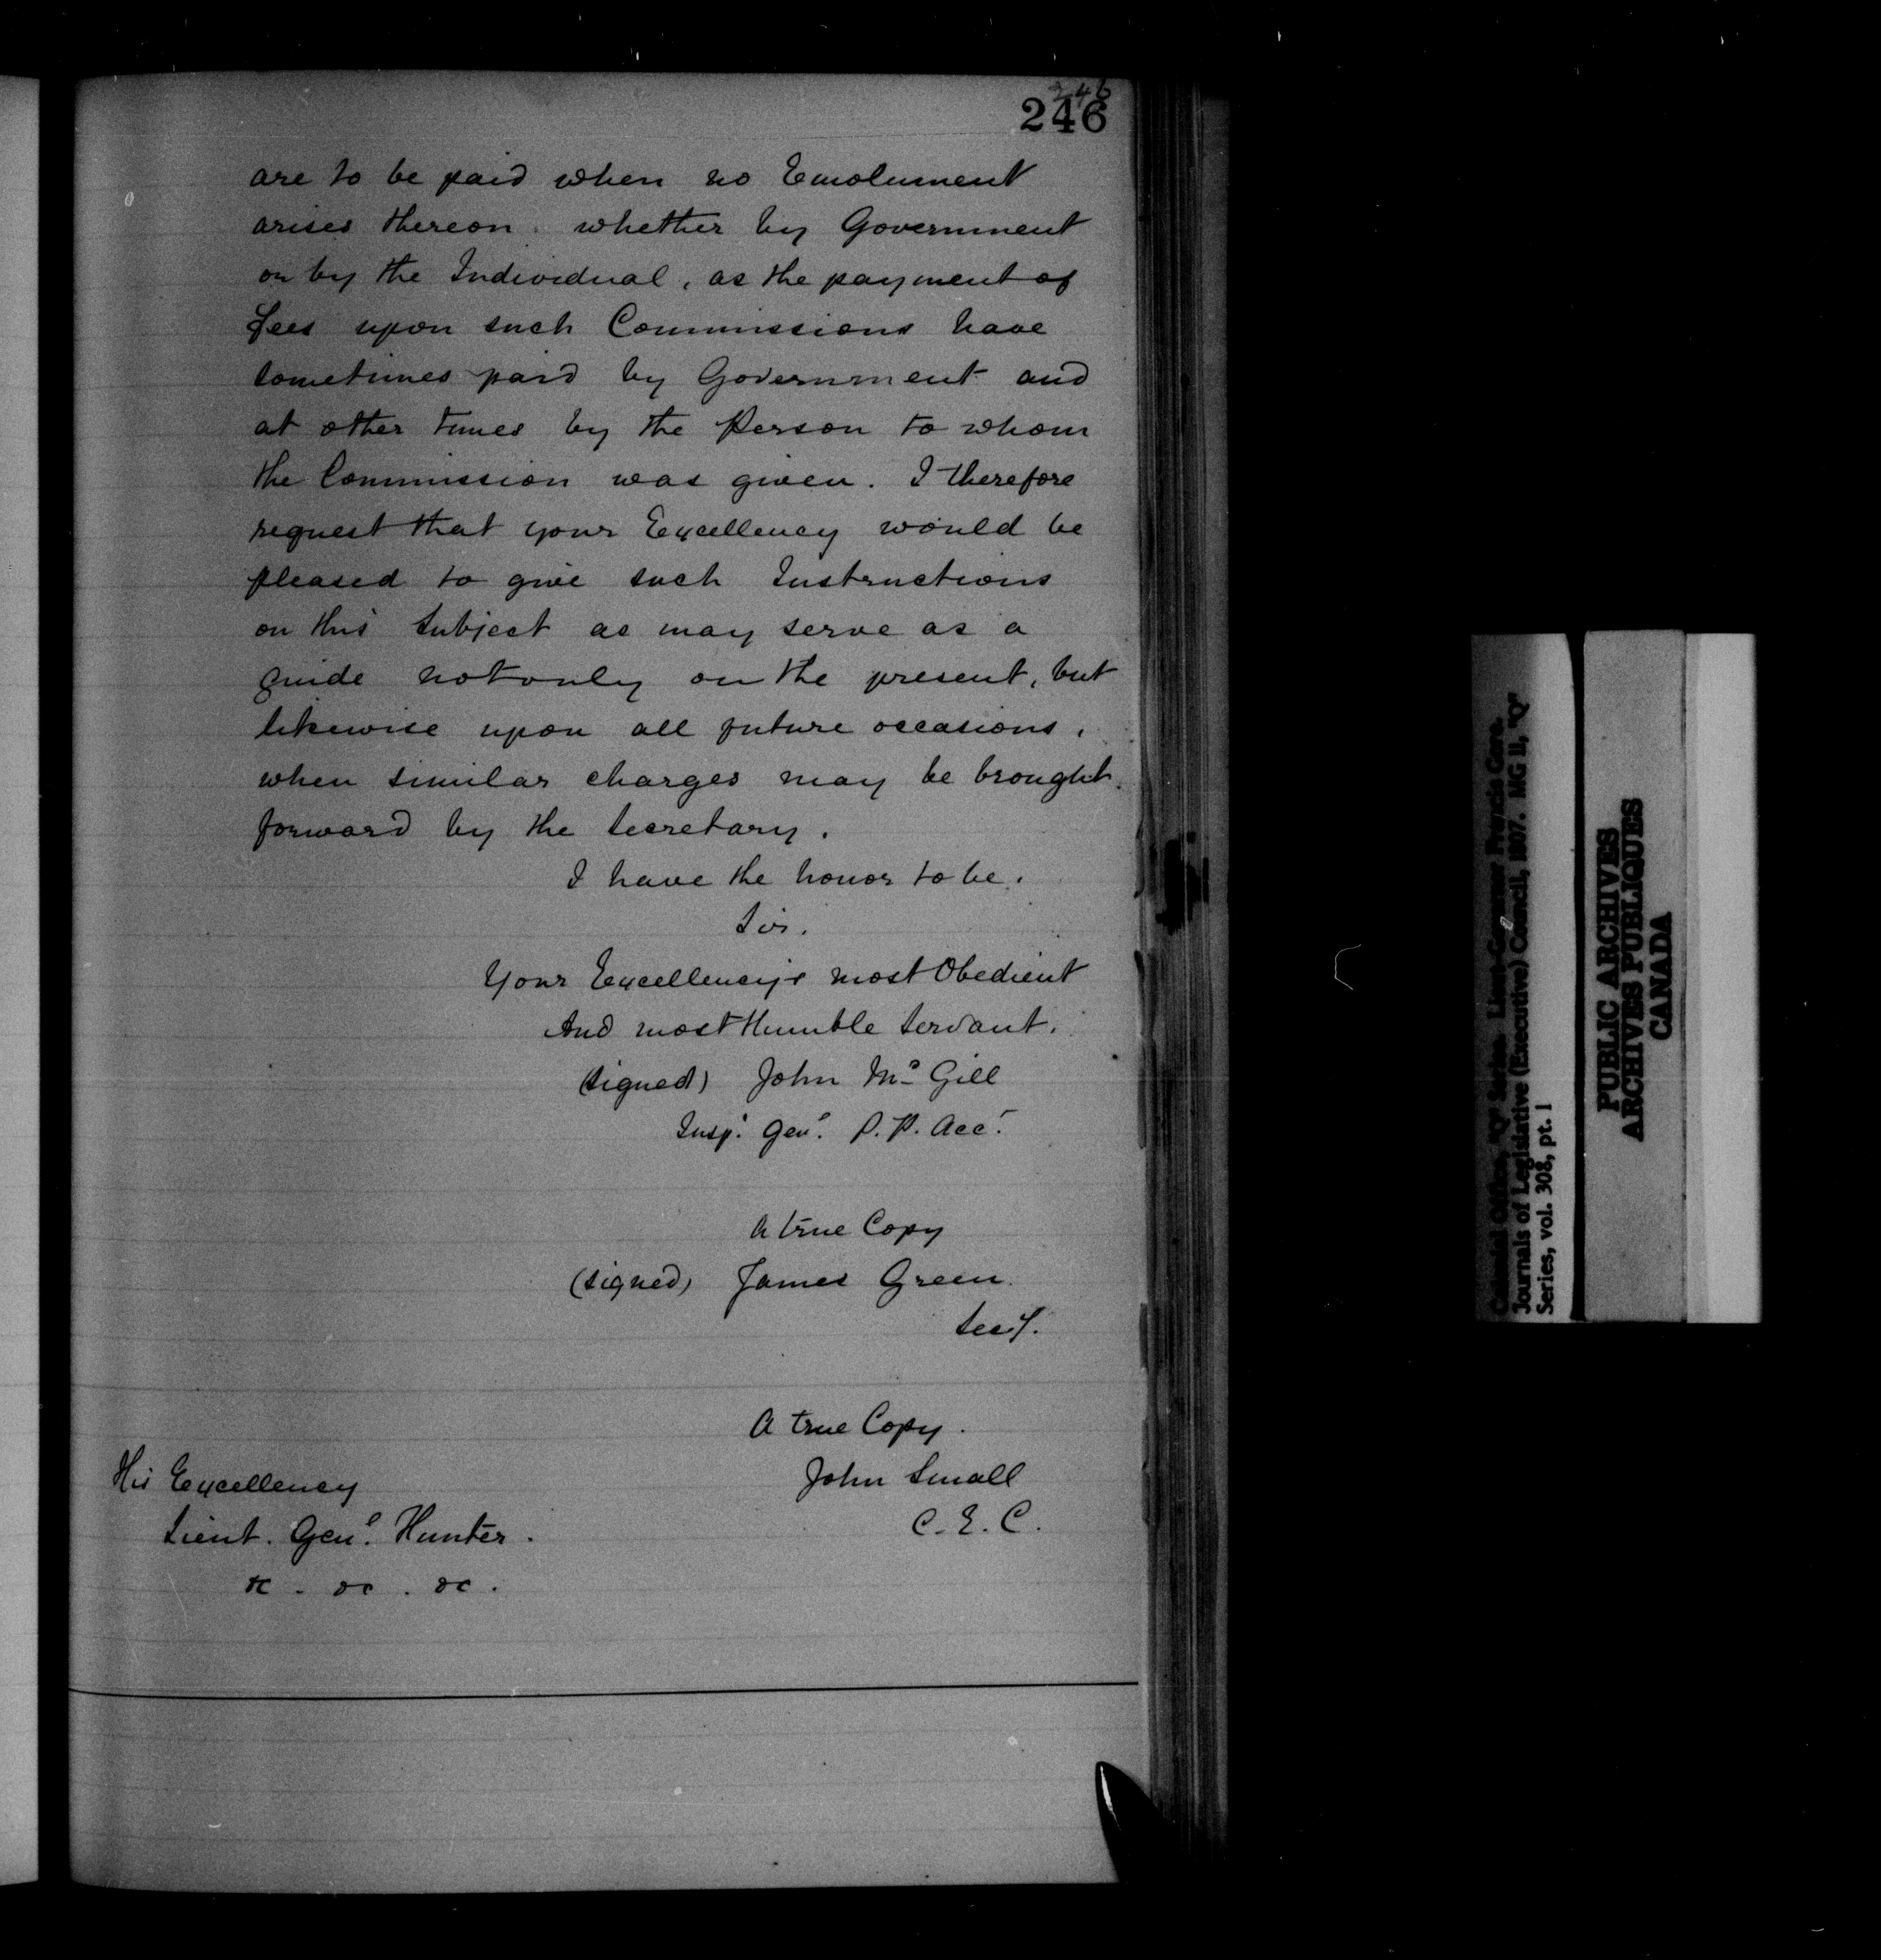 246
246
are to be paid when no Emolument
arises thereon. whether by Government
or by the Individual, as the payment of
Fees upon such Commissions have
sometimes paid by Government and
at other times by the Person to whom
the Commission was given. I therefore
request that your Excellency would be
pleased to give such Instructions
on this Subject as may serve as a
guide not only on the present, but
likewise upon all future occasions,
when similar charges may be brought
forward by the Secretary.
I have the honor to be.
Sir.
Your Excellency's most Obedient
And most Humble Servant.
(signed) John Mc Gill
Insp. Genl. P. P. Acc.
A true Copy
(signed) James Green.
Secy.
A true Copy.
John Small
C. E. C.
His Excellency
Lieut. Genl. Hunter.
&c. &c. &c.
Colonial Office, "Q" Series. Lieut-Governor Francis Gore.
Journals of Legislative (Executive) Council, 1807. MG 11, "Q"
Series, vol. 308, pt. 1
PUBLIC ARCHIVES
ARCHIVES PUBLIQUES
CANADA